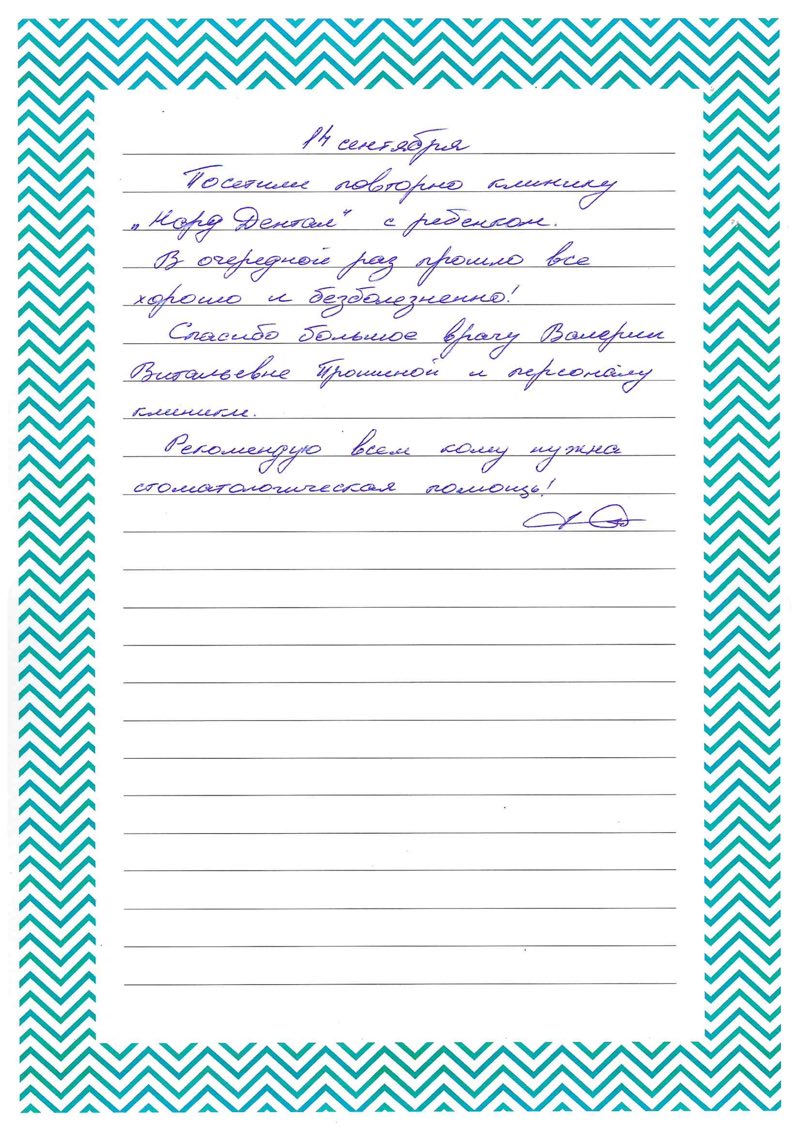 14 сентября
Посетили повторно клинику
„Норд Дентал" с ребенком.
В очередной раз прошло все
хорошо и безболезненно!
Спасибо большое врачу Валерии
Витальевне Прошиной и персоналу
клиники.
Рекомендую всем кому нужна
стоматологическая помощь!